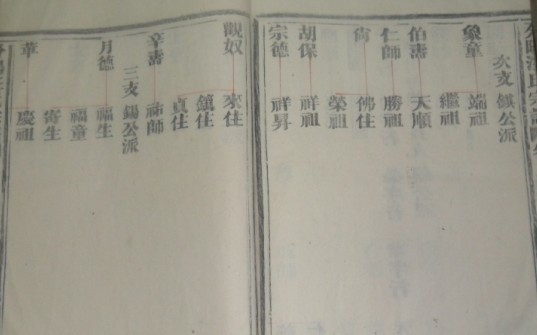 次支 鏌公派
象童 端祖
繼祖
伯壽 天順
仁師 勝祖
佛住
榮祖
胡保 祥祖
宗德 祥昇
觀奴 來住
鎮住
真住
辛壽 祐師
三支 錫公派
月德 福生
福童
寄生
華 慶祖